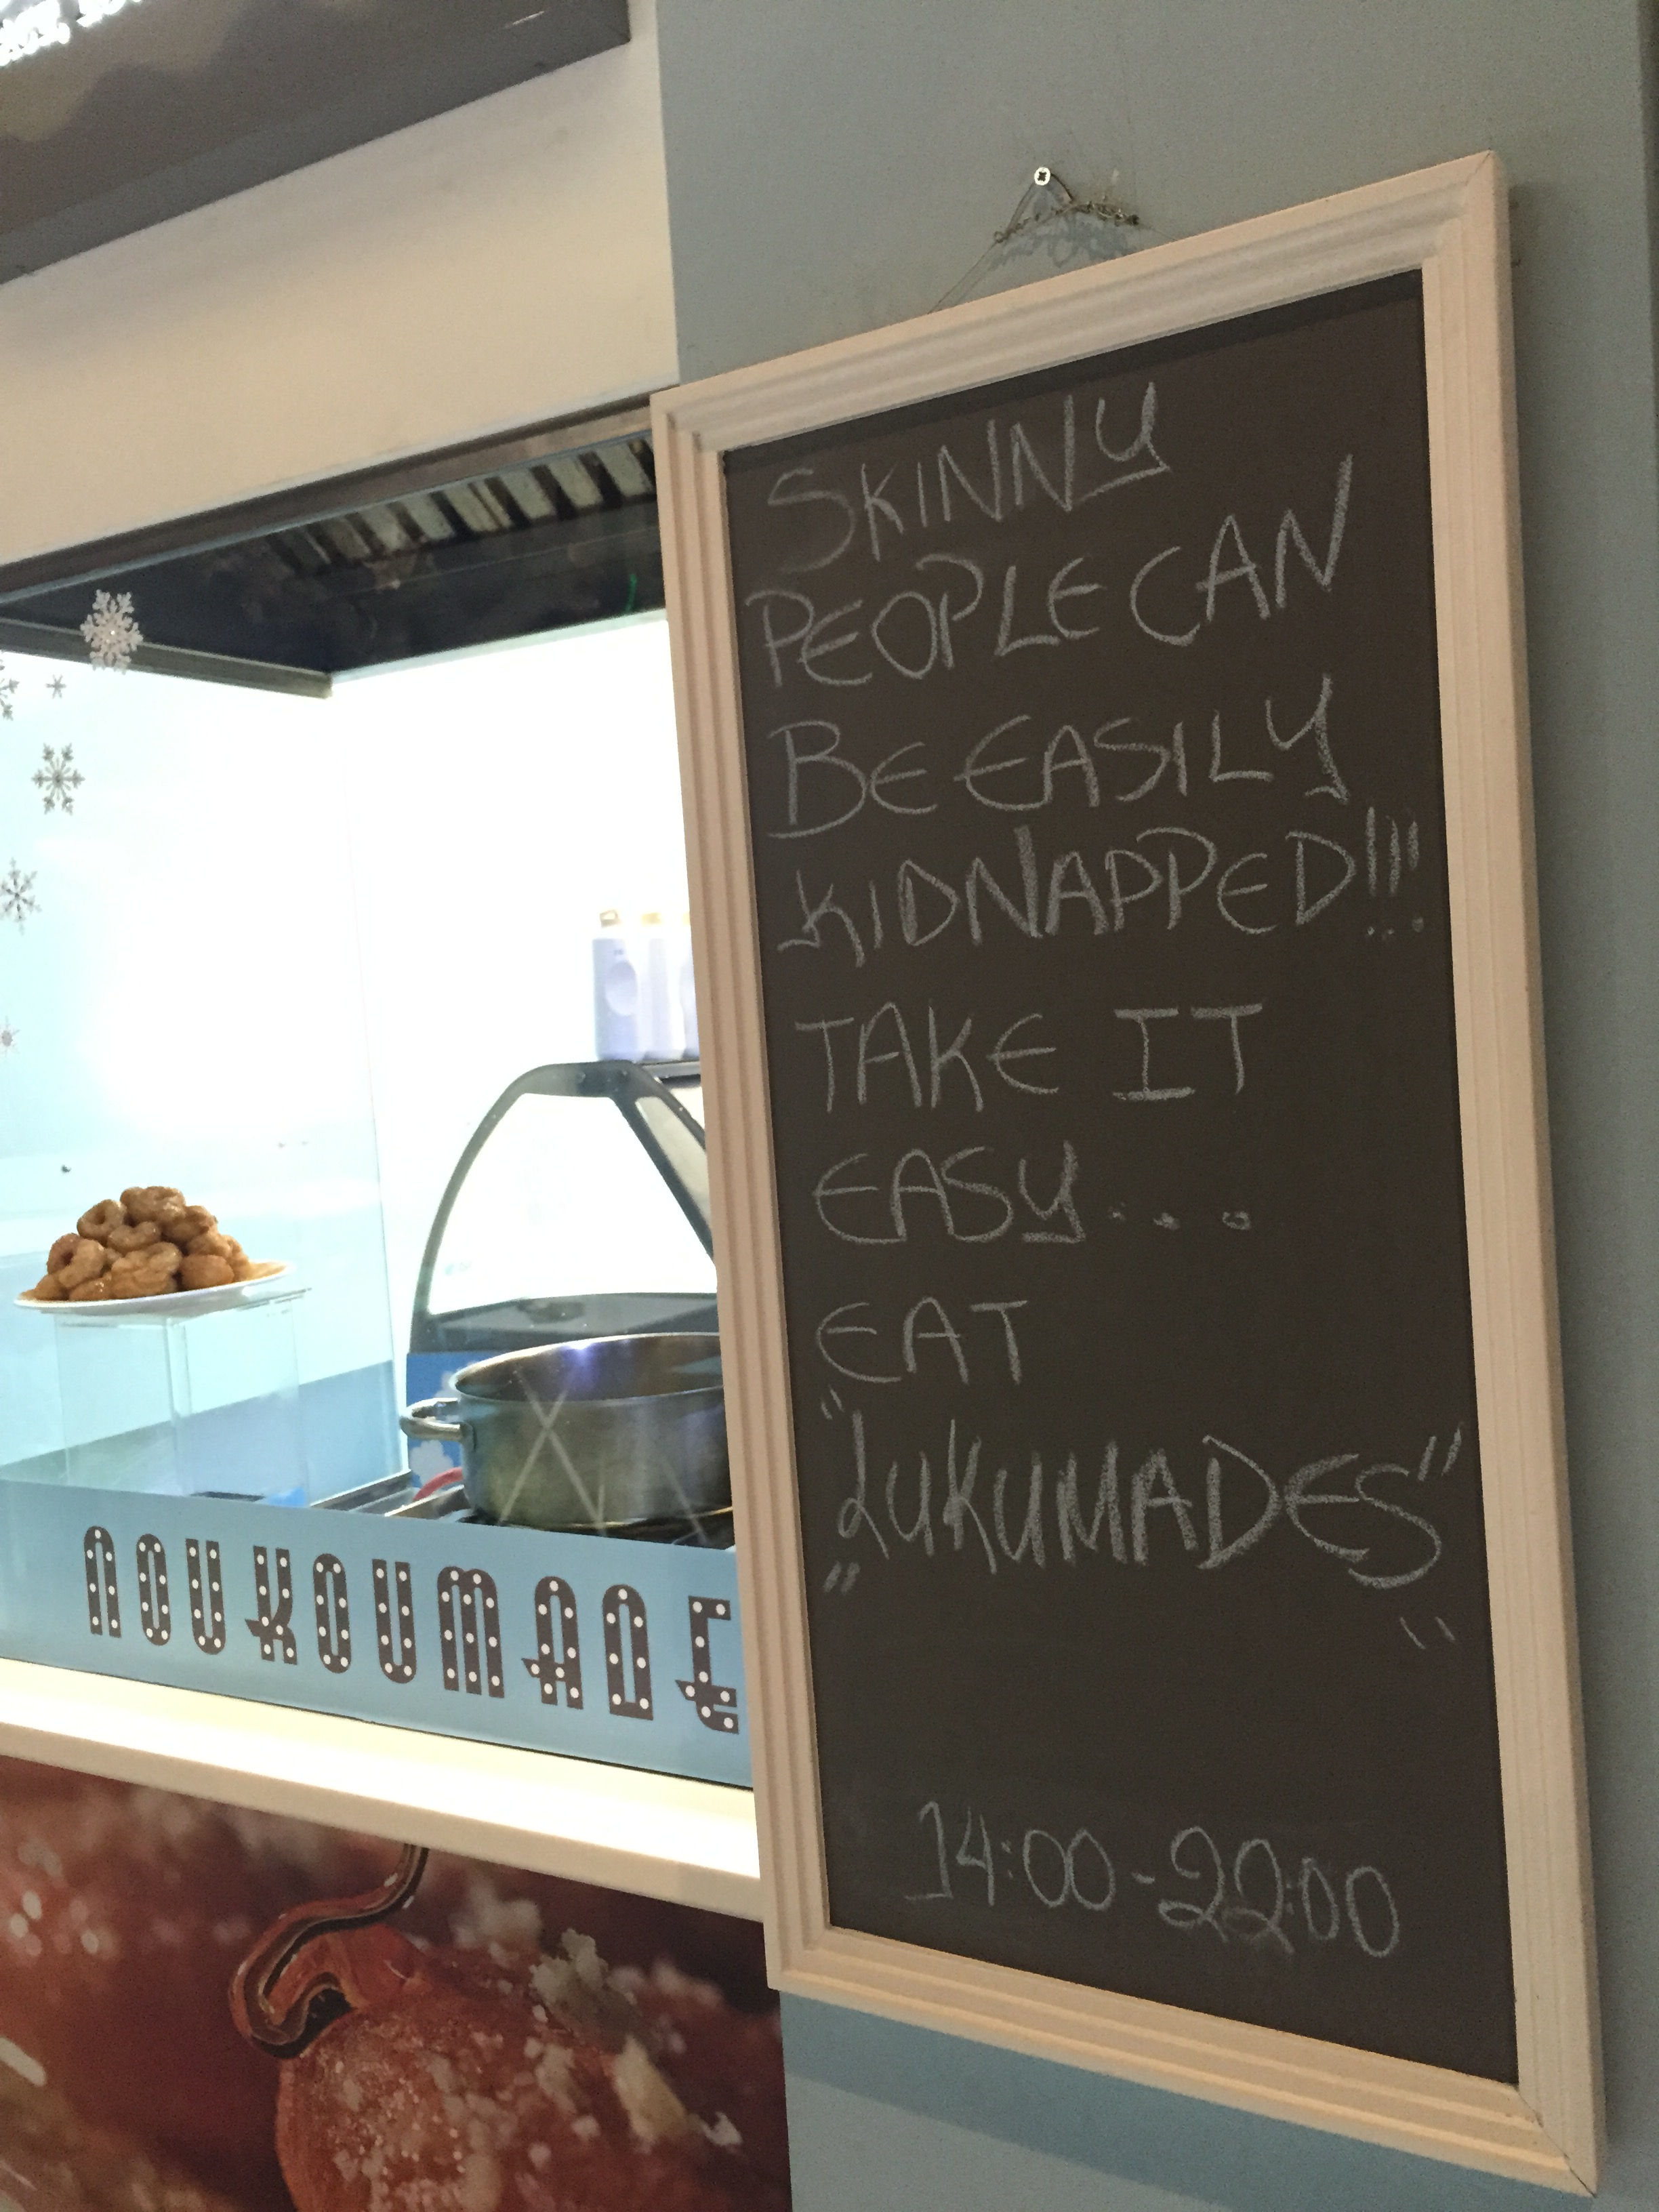 SKINNY
PEOPLE CAN
BE EASILY
KIDNAPPED!!!
TAKE IT
EASY...
EAT
"LUKUMADES"
14:00-22:00
ΛOUKOUMADE